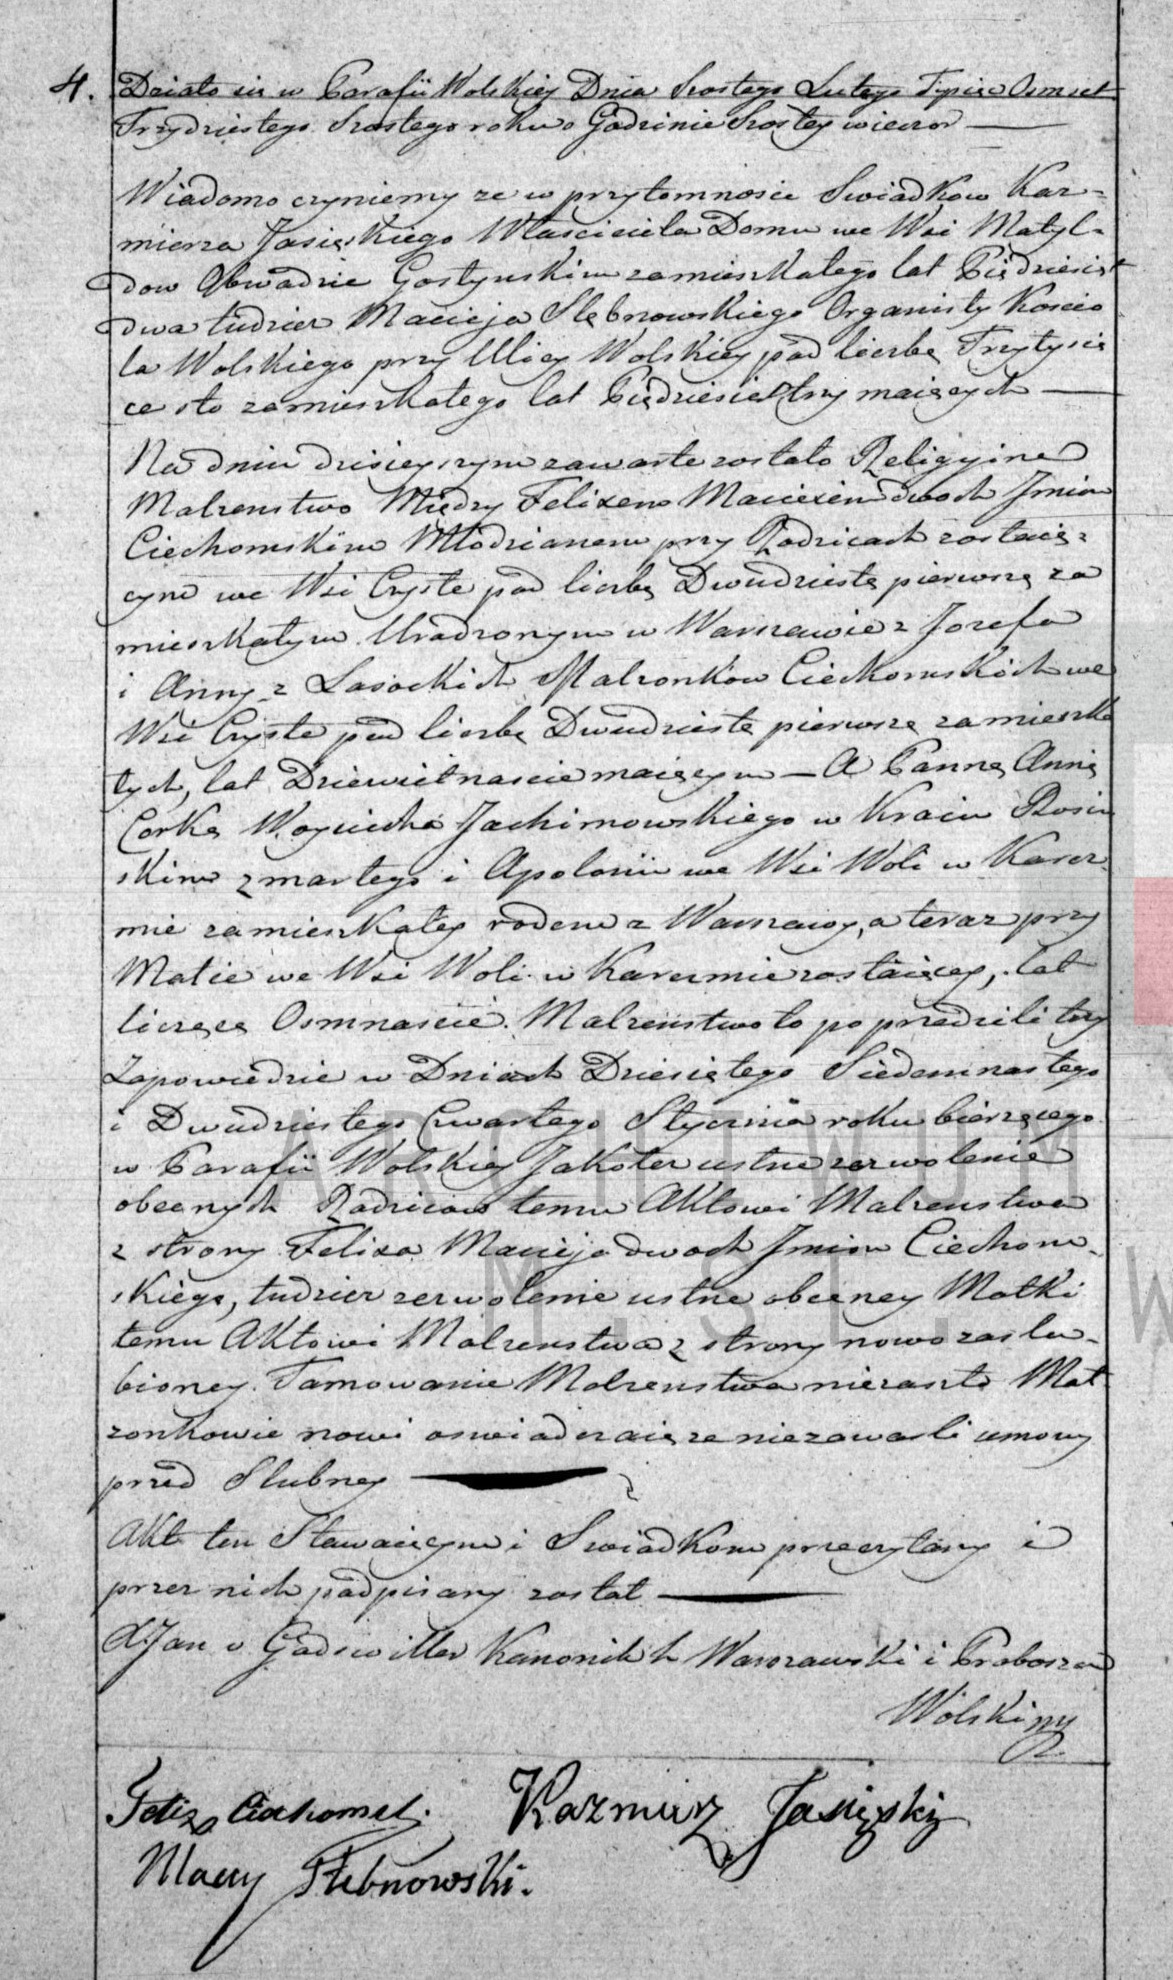 4. Działo się w Parafii Wolskiey Dnia Szostego Lutego Tysiąc Osmset
Trzydziestego Szostego roku o Godzinie Szostey wieczor
Wiadomo czyniemy ze w przytomnosci Swiadkow Kaz-
mierza Jasięskiego Własciciela Domu we Wsi Matyl-
dow Obwodzie Gostynskim zamieszkałego lat Piędziesiąt
dwa tudziez Macieja Słębnowskiego Organisty Koscio
ła Wolskiego przy Ulicy Wolskiey pod liczbą Trzytysią
ce sto zamieszkałego lat Piędziesiąt trzy maięcych
Na dniu dzisieyszym zawarte zostało Religyine
Malzenstwo Między Felixem Maciejem dwoch Imion
Ciechomskim Młodzianem przy Rodzicach zostaią-
cym we Wsi Czyste pod liczbą Dwudziestą pierwszą za
mieszkałym Urodzonym w Warszawie z Jozefa
i Anny z Lasockich Małzonkow Ciechomskich we
Wsi Czyste pod liczbą Dwudziestą pierwszą zamieszka
łych, lat Dziewietnascie maięcym — A Panną Anną
Corką Woyciecha Jachimowskiego w Kraiu Rosiy
skim zmarłego i Apolonii we Wsi Woli w Karcz
mie zamieszkałey rodem z Warszawy, a teraz przy
Matce we Wsi Woli w Karczmie zostaiącey, lat
liczącą Osmnascie. Malzenstwo to poprzedziły trzy
Zapowiedzie w Dniach Dziesiątego Siedemnastego
i Dwudziestego Czwartego Stycznia roku bierzącego
w Parafii Wolskiey Jakotez ustne zezwolenie
obecnych Rodzicow temu Aktowi Malzenstwa
z strony Felixa Macieja dwoch Imion Ciechom-
skiego, tudziez zezwolenie ustne obecney Matki
temu Aktowi Malzenstwa z strony nowo zaslu-
bioney. Tamowanie Malzenstwa niezaszło Mał
zonkowie nowi oswiadczaią ze niezawarli umowy
przed Slubney
Akt ten Stawaiącym i Swiadkom przeczytany i
przez nich podpisany został
X Jan Kanonik Warszawski i Proboszcz
Wolski
Felix Ciechomski. Kazmierz Jasięski
Maciey Słebnowski.
ARCHIWUM
M. ST. W